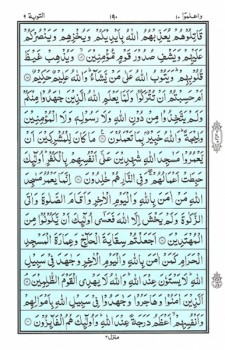 واعلموا ١٠ ١٩٠ التوبة ٩
قَاتِلُوْهُمْ يُعَذِّبْهُمُ اللّٰهُ بِاَيْدِيْكُمْ وَيُخْزِهِمْ وَيَنْصُرْكُمْ
عَلَيْهِمْ وَيَشْفِ صُدُوْرَ قَوْمٍ مُّؤْمِنِيْنَ ۞ وَيُذْهِبْ غَيْظَ
قُلُوْبِهِمْ ؕ وَيَتُوْبُ اللّٰهُ عَلٰى مَنْ يَّشَآءُ ؕ وَاللّٰهُ عَلِيْمٌ حَكِيْمٌ ۞
اَمْ حَسِبْتُمْ اَنْ تُتْرَكُوْا وَلَمَّا يَعْلَمِ اللّٰهُ الَّذِيْنَ جٰهَدُوْا مِنْكُمْ
وَلَمْ يَتَّخِذُوْا مِنْ دُوْنِ اللّٰهِ وَلَا رَسُوْلِهٖ وَلَا الْمُؤْمِنِيْنَ
وَلِيْجَةً ؕ وَاللّٰهُ خَبِيْرٌۢ بِمَا تَعْمَلُوْنَ ۞ مَا كَانَ لِلْمُشْرِكِيْنَ اَنْ
يَّعْمُرُوْا مَسٰجِدَ اللّٰهِ شٰهِدِيْنَ عَلٰٓى اَنْفُسِهِمْ بِالْكُفْرِ ؕ اُولٰٓئِكَ
حَبِطَتْ اَعْمَالُهُمْ ۚ وَفِي النَّارِ هُمْ خٰلِدُوْنَ ۞ اِنَّمَا يَعْمُرُ مَسٰجِدَ
اللّٰهِ مَنْ اٰمَنَ بِاللّٰهِ وَالْيَوْمِ الْاٰخِرِ وَاَقَامَ الصَّلٰوةَ وَاٰتَى
الزَّكٰوةَ وَلَمْ يَخْشَ اِلَّا اللّٰهَ فَعَسٰٓى اُولٰٓئِكَ اَنْ يَّكُوْنُوْا مِنَ
الْمُهْتَدِيْنَ ۞ اَجَعَلْتُمْ سِقَايَةَ الْحَآجِّ وَعِمَارَةَ الْمَسْجِدِ
الْحَرَامِ كَمَنْ اٰمَنَ بِاللّٰهِ وَالْيَوْمِ الْاٰخِرِ وَجٰهَدَ فِيْ سَبِيْلِ
اللّٰهِ ؕ لَا يَسْتَوٗنَ عِنْدَ اللّٰهِ ؕ وَاللّٰهُ لَا يَهْدِي الْقَوْمَ الظّٰلِمِيْنَ ۞
اَلَّذِيْنَ اٰمَنُوْا وَهَاجَرُوْا وَجٰهَدُوْا فِيْ سَبِيْلِ اللّٰهِ بِاَمْوَالِهِمْ
وَاَنْفُسِهِمْ ۙ اَعْظَمُ دَرَجَةً عِنْدَ اللّٰهِ ؕ وَاُولٰٓئِكَ هُمُ الْفَآئِزُوْنَ ۞
منزل ٢